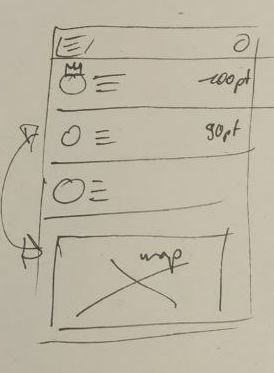 100pt
90pt
map